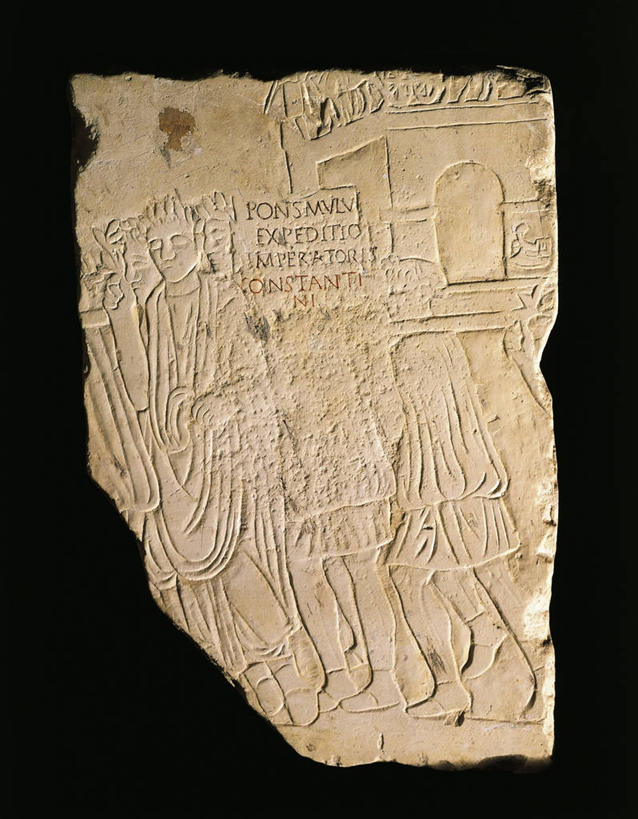 PONS MVLV
EXPEDITIO
IMPERATORIS
CONSTANTI
NI